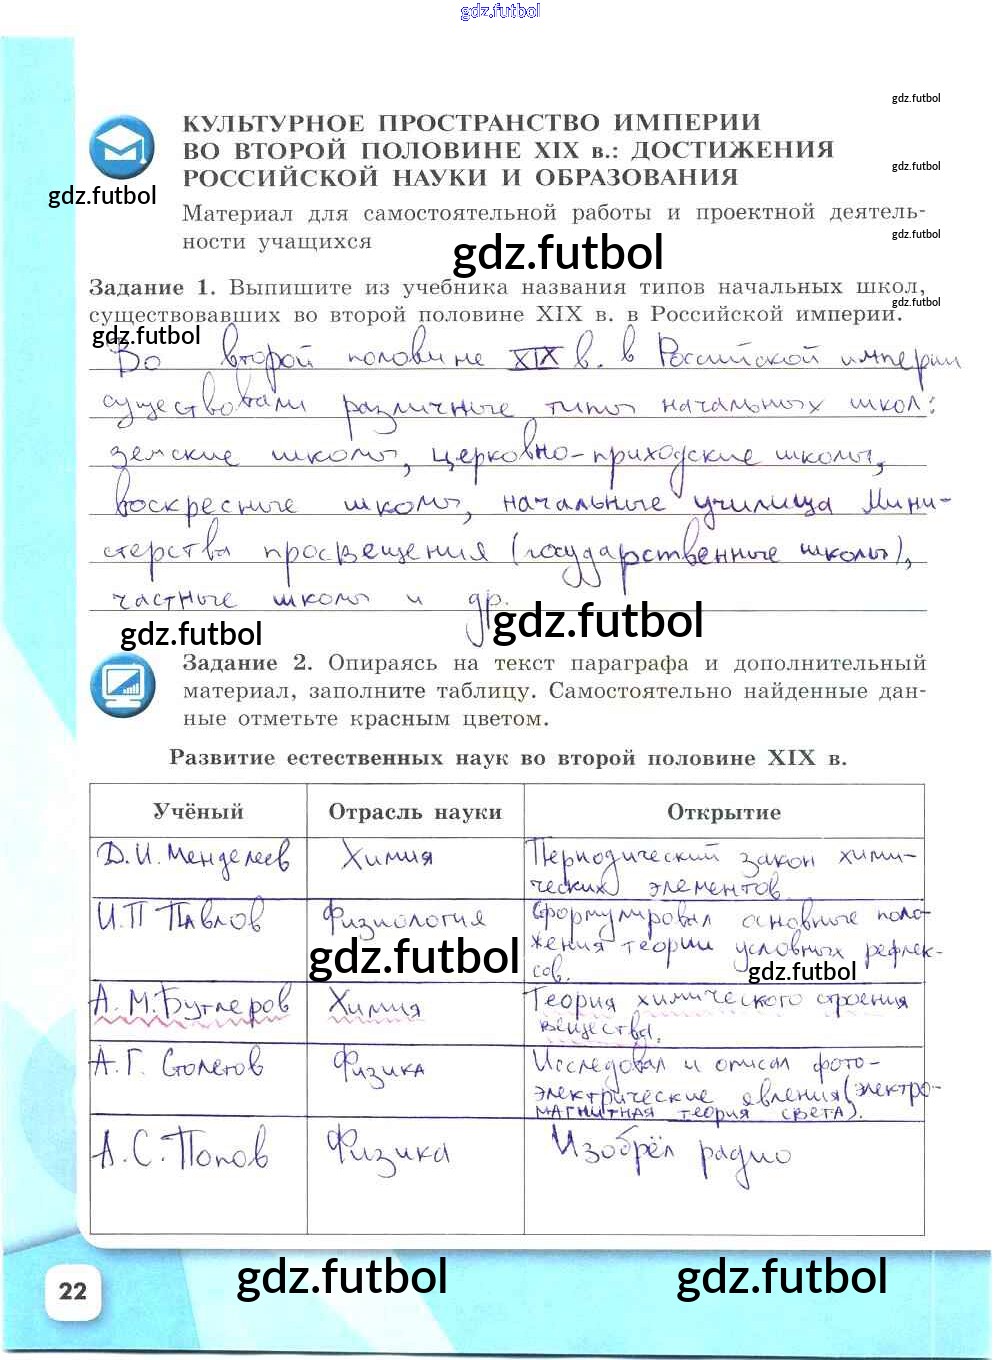 gdz.futbol
gdz.futbol
КУЛЬТУРНОЕ ПРОСТРАНСТВО ИМПЕРИИ
ВО ВТОРОЙ ПОЛОВИНЕ XIX в.: ДОСТИЖЕНИЯ
gdz.futbol
РОССИЙСКОЙ НАУКИ И ОБРАЗОВАНИЯ
gdz.futbol
Материал для самостоятельной работы и проектной деятель-
ности учащихся
gdz.futbol
gdz.futbol
Задание 1. Выпишите из учебника названия типов начальных школ,
gdz.futbol
существовавших во второй половине XIX в. в Российской империи.
gdz.futbol
Во второй половине XIX в. в Российской империи
существовали различные типы начальных школ:
земские школы, церковно-приходские школы,
воскресные школы, начальные училища Мини-
стерства просвещения (государственные школы),
частные школы и др.
gdz.futbol
gdz.futbol
Задание 2. Опираясь на текст параграфа и дополнительный
материал, заполните таблицу. Самостоятельно найденные дан-
ные отметьте красным цветом.
Развитие естественных наук во второй половине XIX в.
Учёный Отрасль науки Открытие
Д.И. Менделеев Химия Периодический закон хими-
ческих элементов
И.П Павлов Физиология Сформулировал основные поло-
жения теории условных рефлек-
сов.
gdz.futbol
gdz.futbol
А.М.Бутлеров Химия Теория химического строения
вещества.
А.Г. Столетов Физика Исследовал и описал фото-
электрические явления (электро-
магнитная теория света).
А.С. Попов Физика Изобрёл радио
gdz.futbol
gdz.futbol
22